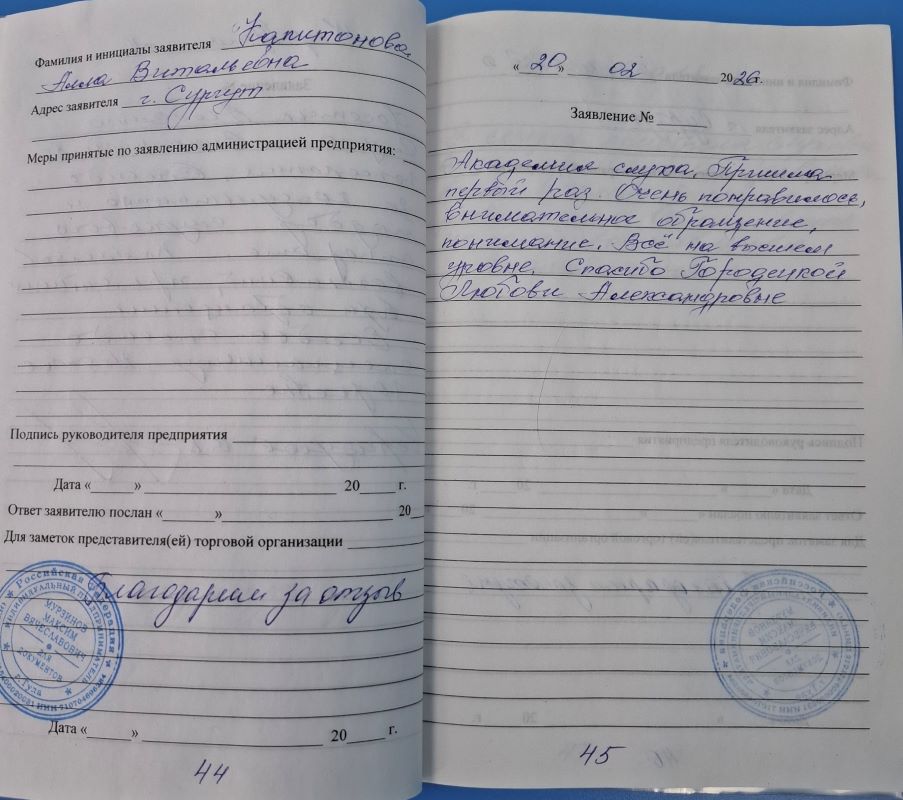 Фамилия и инициалы заявителя Капитонова
Алла Витальевна
Адрес заявителя г. Сургут
Меры принятые по заявлению администрацией предприятия:
Подпись руководителя предприятия
Дата «____» ____ 20___г.
Ответ заявителю послан «____»____ 20__
Для заметок представителя(ей) торговой организации
Благодарим за отзыв
Российская Федерация
ИНДИВИДУАЛЬНЫЙ ПРЕДПРИНИМАТЕЛЬ
МУРЗИНОВ
МАКСИМ
ВЯЧЕСЛАВОВИЧ
ДЛЯ
ДОКУМЕНТОВ
г. Тула
Дата «____» ____ 20___г.
44
«20» 02 2026г.
Заявление № ____
Академия слуха. Пришла
первый раз. Очень понравилось,
внимательное обращение,
понимание. Всё на высшем
уровне. Спасибо Городецкой
Любови Александровне
45